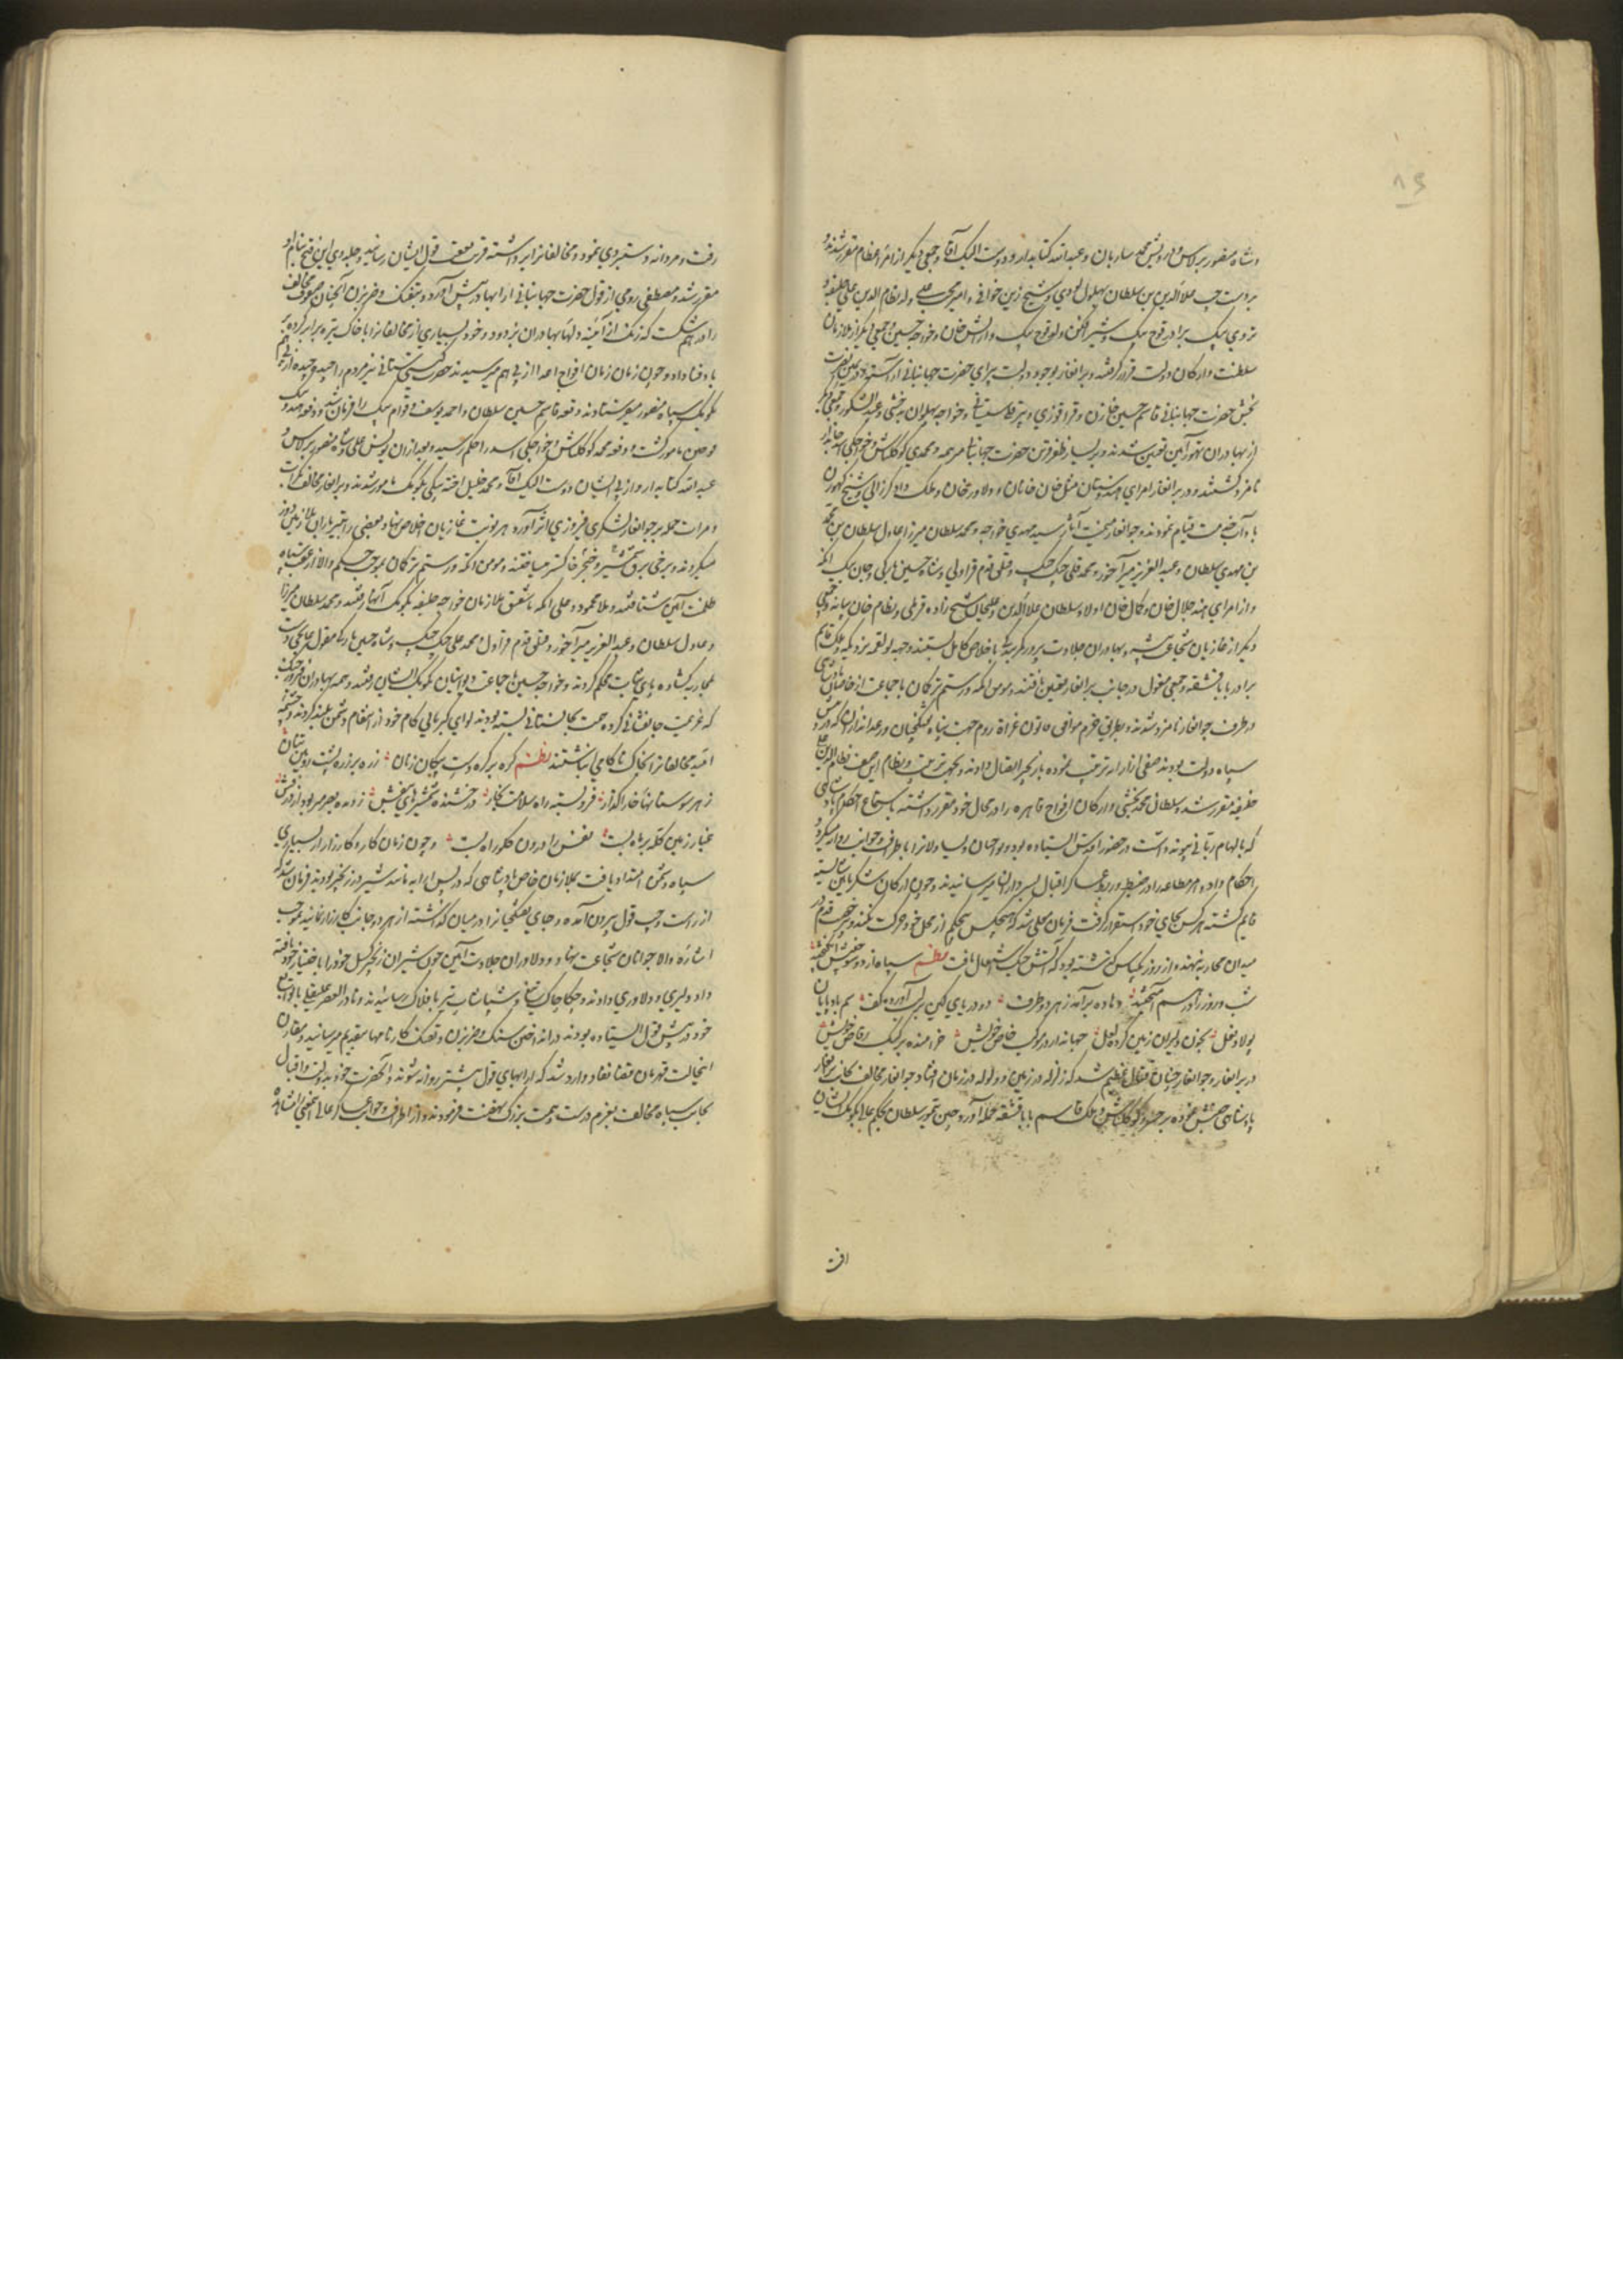 ۸۹
وشاه منصور برلاس و درویش محمد ساربان و عبدالله کتابدار و دوست ایشک آقا و جمعی دیگر از امرا عظام مقرر شدند و
بر دست چپ علاءالدین بن سلطان بهلول لودی و شیخ زین خوافی و امیر محب علی ولد نظام الدین علی خلیفه و
تردی بیک برادر قوج بیک و شیرافکن ولد قوج بیک و ارایش خان و خواجه حسین و جمعی دیگر از ملازمان
سلطنت و ارکان دولت قرار گرفتند و برانغار بوجود دولت پیرای حضرت جهانبانی آراسته بود و یمین نصرت
بخش حضرت جهانبانی قاسم حسین سلطان و قراقوزی و پیرقلی سیستانی و خواجه پهلوان بدخشی و عبدالشکور و جمعی دیگر
از بهادران تهور آیین تعیین شدند و بر یسار ظفرقرین حضرت جهانبانی میرهمه و محمدی کوکلتاش و خواجگی اسد جاندار
نامزد گشتند و در برانغار امرای هندوستان مثل خان خانان و دلاور خان و ملک داد کررانی و شیخ گهورن
باداب خدمت قیام نمودند و در جوانغار میمنت آثار سید مهدی خواجه و محمد سلطان میرزا و عادل سلطان بن
بن مهدی سلطان و عبدالعزیز میرآخور و محمد علی جنگ جنگ و قتلق قدم قراول و شاه حسین بارکی و جان بیک اتکه
و از امرای هند جلال خان و کمال خان اولاد سلطان علاءالدین و علیخان شیخ زاده قرملی و نظام خان بیانه و جمعی
دیگر از غازیان شجاعت پیشه و بهادران جلادت پرور کمر باخلاص کامل بستند و جهت تولقمه تردیکه و ملک قاسم
برادر بابا قشقه و جمعی مغول در جانب برانغار تعیین یافتند و مومن اتکه و رستم ترکمان با جماعت از خاصان
در طرف جوانغار نامزد شدند و بطریق حزم موافق قانون غزاة روم جهت پناه تفنگچیان و رعداندازان که در پیش
سپاه دولت بودند صفی از ارابه ترتیب نموده بزنجیر اتصال دادند و بجهت ترتیب و نظام این صف نظام الدین علی
خلیفه مقرر شد و سلطان محمد بخشی و ارکان افواج قاهره را در محال خود مقرر داشته باستماع احکام پادشاهی
که بالهام ربانی پیوند داشت در حضور اقدس ایستاده بود و تواچیان و یساولان را باطراف و جوانب روان میکرد و
احکام داد و هر مطاعه را در ضبط و ربط عساکر اقبال بسرداران میرسانیدند و چون ارکان لشکر باین شایسته
قایم گشته هر کس بجای خود استقرار گرفت فرمان معلی شد که هیچکس بیحکم از محل خود حرکت نکند و بی رخصت قدم در
میدان محاربه ننهند و از روز یکپاس گذشته بود که آتش جنگ اشتعال یافت نظم سپاه از دو سو جنبش انگیخته
شب و روز را در هم آمیخته دهاده برآمد ز هر دو طرف دو دریای کین بر لب آورده کف سم بادپایان
پولاد نعل بخون دلیران زمین کرده لعل جهاندار در موکب خاص خویش خرامنده بر کبک رقاص خویش
در برانغار و جوانغار چنان قتال عظیم شد که زلزله در زمین و ولوله در زمان افتاد جوانغار مخالف بجانب برانغار
پادشاهی جنبش نموده بر خسرو کوکلتاش و ملک قاسم بابا قشقه حمله آورد و چین تیمور سلطان بحکم عالی بکومک ایشان
رفت
رفت و مردانه دستبردی نمود و مخالفان را برداشته قریب بعقب قول ایشان رسانید و جلدوی این فتح بنام او
مقرر شد و مصطفی رومی از قول حضرت جهانبانی ارابها در پیش آورد و بتفنگ و ضربزن آنچنان صفوف مخالف
را در هم شکست که زنگ از آئینه دلهای بهادران بزدود و خود بسیاری از مخالفان را با خاک تیره برابر کرده بر
باد فنا داد و چون زمان زمان افواج اعدا از پی هم میرسیدند حضرت گیتی ستانی نیز مردم را چیده چیده از پی هم
بکومک سپاه منصور میفرستادند دفعه قاسم حسین سلطان و احمد یوسف و قوام بیک را فرمان شد و دفعه هندو بیک
قوچین مامور گشت و دفعه محمد کوکلتاش و خواجگی اسد را حکم رسید و بعد ازان یونس علی و شاه منصور برلاس و
عبدالله کتابدار و از پی ایشان دوست ایشک آقا و محمد خلیل اخته بیگی بکومک مامور شدند و برانغار مخالف کرات
و مرات حمله بر جوانغار لشکر فیروزی اثر آورد هر نوبت غازیان اخلاص نهاد بعضی را بتیرباران بلا زمین دوز
میکردند و برخی ببرق شمشیر و خنجر خاکستر میساختند و مومن اتکه و رستم ترکمان بموجب حکم والا از عقب سپاه
ظلمت آیین شتافتند و ملا محمود و علی اتکه باشلیق ملازمان خواجه خلیفه بکومک آنها رفتند و محمد سلطان میرزا
و عادل سلطان و عبدالعزیز میرآخور و قتلق قدم قراول و محمد علی جنگ جنگ و شاه حسین بارکی مغول غانچی دست
بمحاربه گشاده پای ثبات محکم کردند و خواجه حسین با جماعت دیوانیان بکومک ایشان رفتند و همه بهادران فیروز جنگ
که عزیمت جانفشانی کرده همت بجانستانی بسته بودند لوای کبریایی کام خود از انتقام دشمن بلند کردند و چشمه
امید مخالفان را بخاک ناکامی انباشتند نظم گره بر گره دست پیکان زنان زره بر زره پشت رویین تنان
ز هر سو سنانها خاراگذار فرو بسته راه سلامت بخار درخشنده شمشیرهای بنفش ز دیده بصر میربود از درفش
غبار زمین کله بر ماه بست نفس را درون گلو راه بست و چون زمان کارو کارزار از بسیاری
سپاه دشمن امتداد یافت بملازمان خاص پادشاهی که در پس ارابه مانند شیر در زنجیر بودند فرمان شد که
از راست و چپ قول بیرون آمده و جای تفنگچیان را در میان گذاشته از هر دو جانب کارزار نمایند بموجب
اشاره والا جوانان شجاعت نهاد و دلاوران جلادت آیین چون شیران زنجیر گسل خود را باختیار خود یافته
داد دلیری و دلاوری دادند و چکاچاک تیغ و شپاشاپ تیر بافلاک رسانیدند و نادر العصر علیقلی با توابع
خود در پیش قول ایستاده بودند در انداختن سنگ و ضربزن و تفنگ کارنامها بتقدیم میرسانید و مقارن
اینحالت قهرمان قضا نفاذ وارد شد که ارابهای قول پیشتر روانه شوند و آنحضرت خود بدولت و اقبال
بجانب سپاه مخالف بعزم درست و همت بزرگ نهضت فرمودند و از اطراف و جوانب عساکر عالی اینمعنی را مشاهده